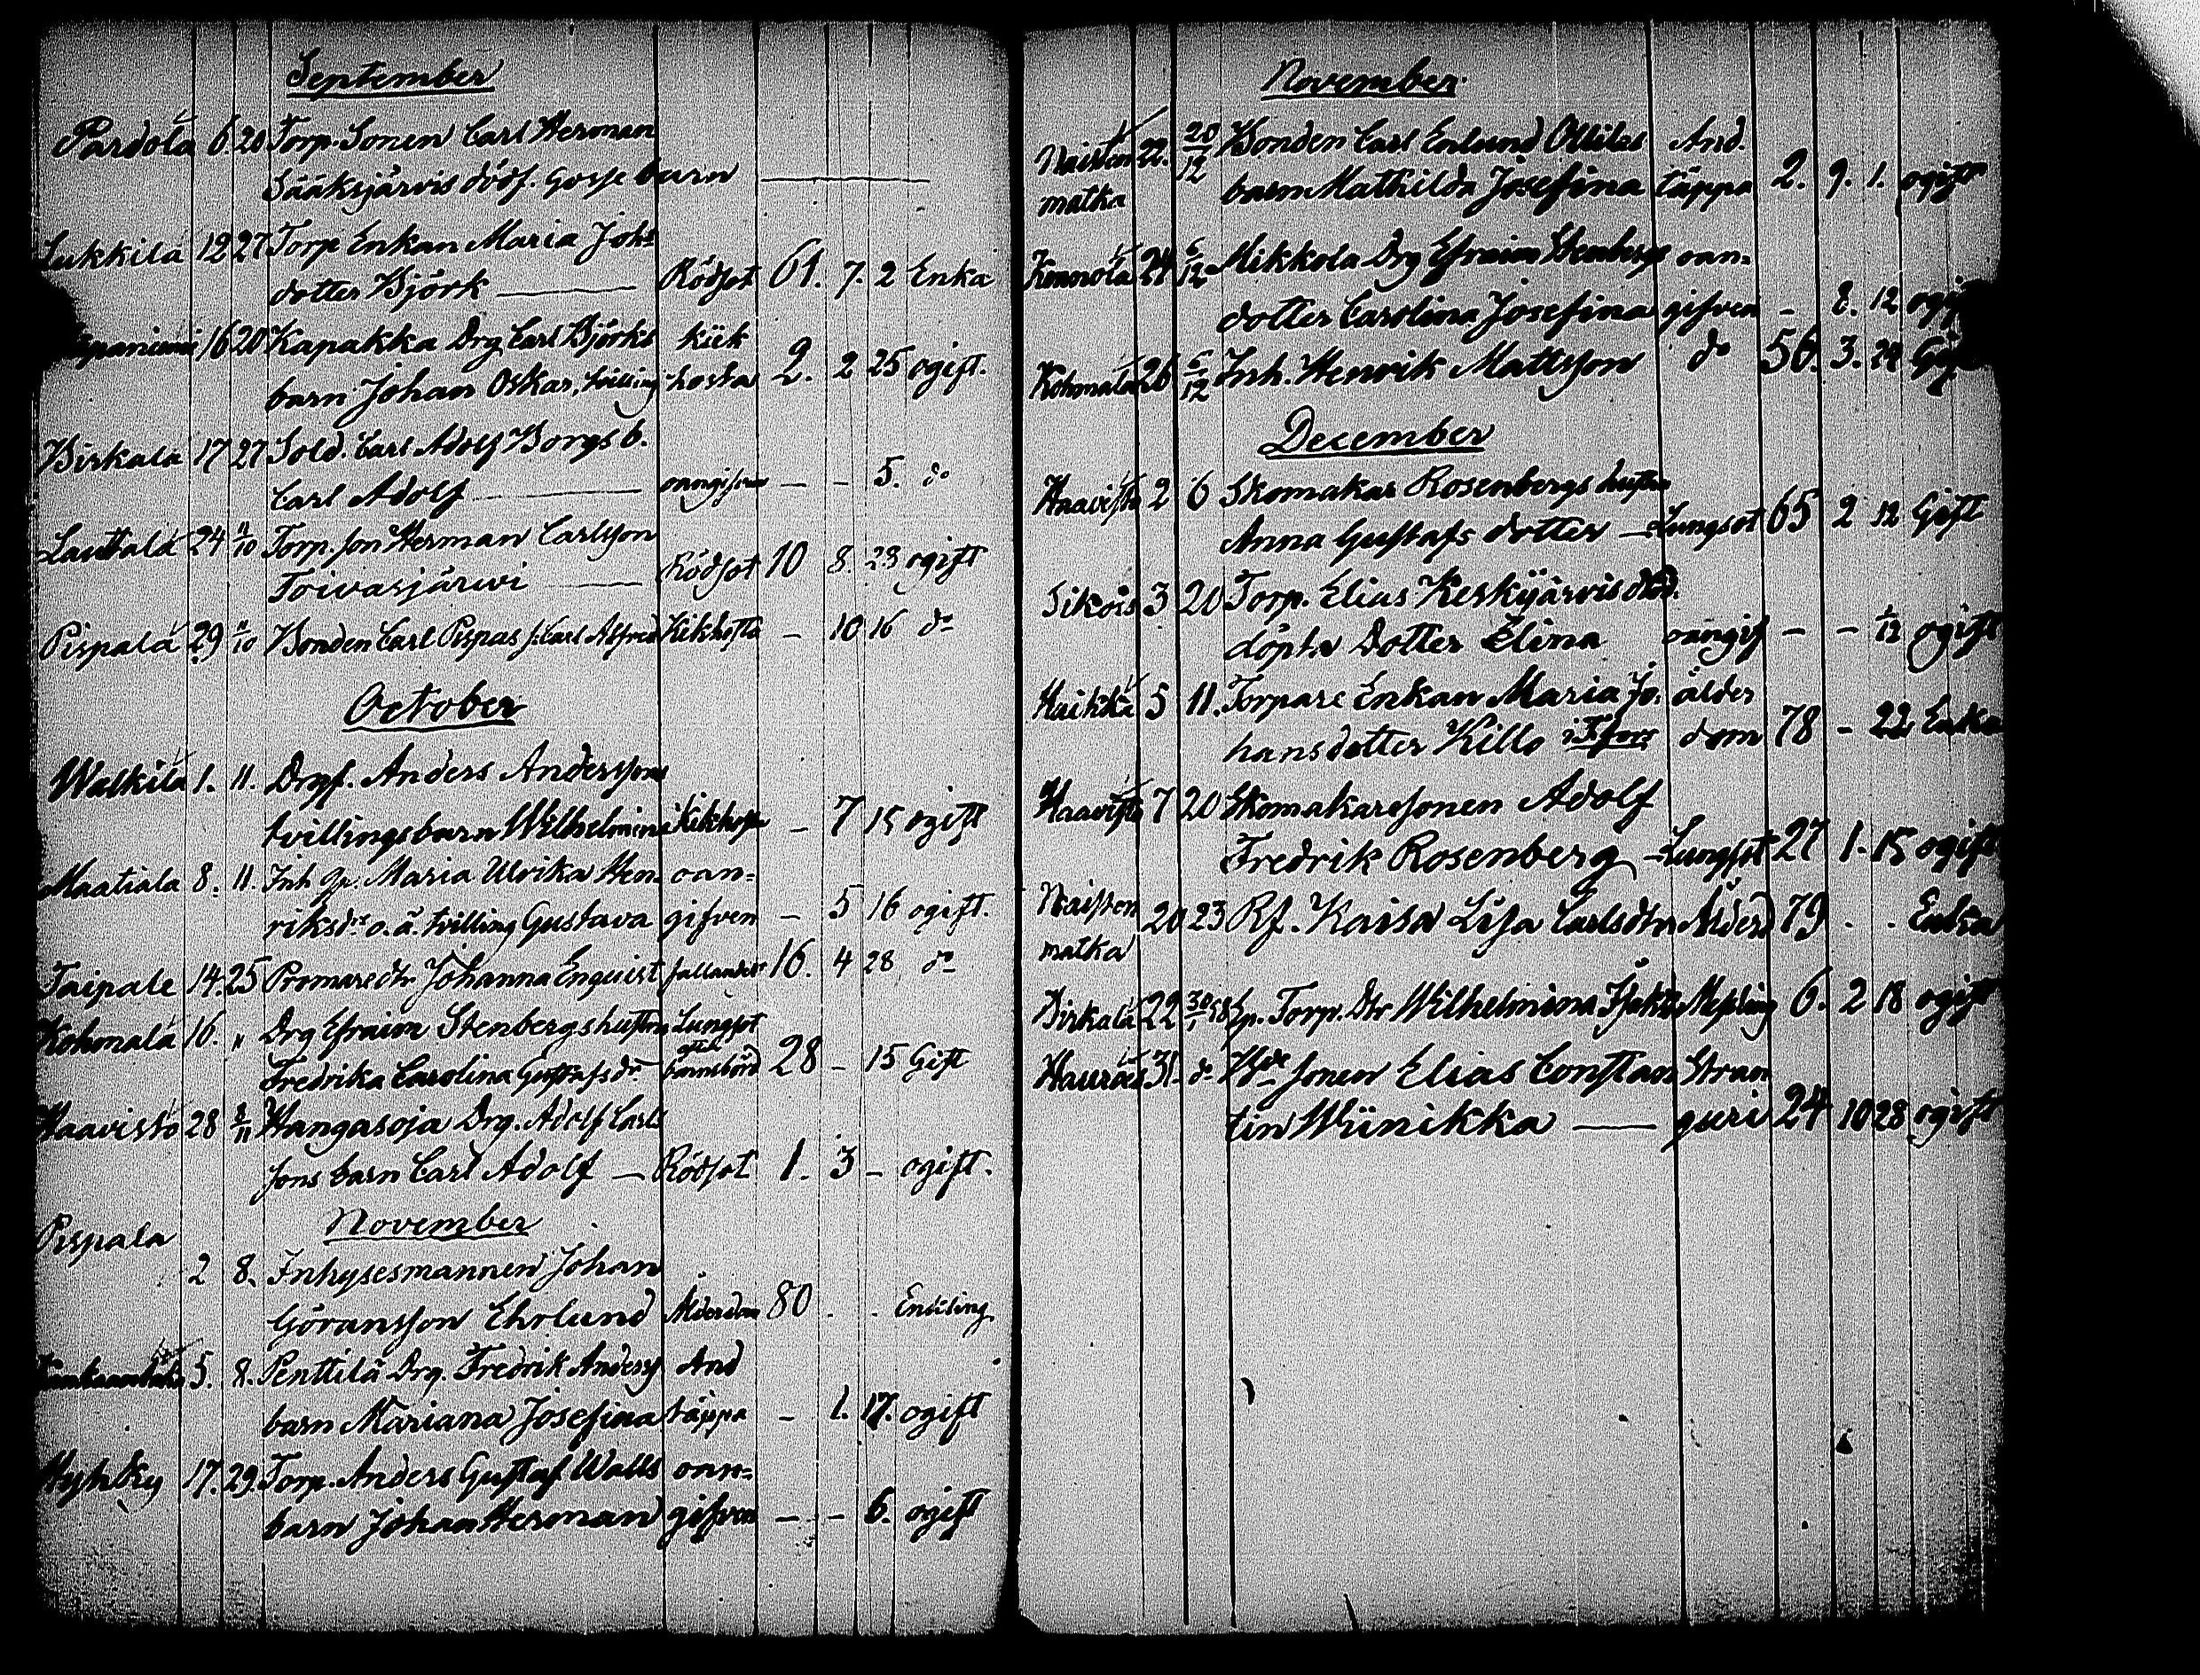 September
Pardola 6 20 Torp. Sonen Carl Herman
Sääksjärvis dödf. Gosse barn —
Sukkila 12 27 Torp Enkan Maria Johs
dotter Björk — Rödsot 61. 7. 2 Enka
16 20 Kapakka Drg Carl Björks kik
barn Johan Oskar, tvilling hosta 2. 2 25 ogift.
Birkala 17 27 Sold. Carl Adolf Borgs b.
Carl Adolf — oangifven — — 5. do
Lauttala 24 11/10 Torp. son Herman Carlsson
Toivasjärwi — Rödsot 10 8. 23 ogift
Pispala 29 11/10 Bonden Carl Pispas s. Carl Alfred Kikhosta — 10 16 do
October
Walkila 1. 11. Drgs. Anders Anderssons
tvillingsbarn Wilhelmina Kikhosta — 7 15 ogift
Maatiala 8. 11. Inh qv. Maria Ulrika Hen- oan-
riksdrs o.ä. tvilling Gustava gifven — 5 16 ogift.
Taipale 14. 25 Promaredtr Johanna Enquist fallandes. 16. 4 28 do
Kohonala 16. " Drg Efraim Stenbergs hustru Lungsot
Fredrika Carolina Gustafsdr barnsbörd 28 — 15 Gift
Haavisto 28 8/11 Hangasoja Drg. Adolf Carls
sons barn Carl Adolf — Rödsot 1. 3 — ogift.
November
Pispala
2 8. Inhysesmannen Johan
Göransson Ehrlund Ålderdom 80 . . Enkling
5. 8. Penttilä Drg. Fredrik Anderss And
barn Mariana Josefina täppa — 1. 17. ogift
Hyhky 17. 29. Torp. Anders Gustaf Walls oan-
barn Johan Herman gifven — — 6. ogift
November
Naisten 22. 20/12 Bonden Carl Enlund Ollilas And.
matka barn Mathilda Josefina täppa 2. 9. 1. ogift
24 6/12 Mikkola Drg Efraim Stenbergs oan-
dotter Carolina Josefina gifven — 8. 12 ogif
Kohonala 26 6/12 Inh. Henrik Mattsson do 56. 3. 24 Gif
December
Haavisto 2 6 Skomakar Rosenbergs hustru
Anna Gustafs dotter — Lungsot 65 2 12 Gift
Sikois 3 20 Torp. Elias Keskijärvis
döpta Dotter Elina oangif — — 1/12 ogift
Haikka 5 11. Torpare Enkan Maria Jo- ålder
hansdotter Killo dom 78 — 22 Enka
Haavisto 7 20 Skomakaresonen Adolf
Fredrik Rosenberg — Lungsot 27 1. 15 ogift
Naisten 20 23 Rf. Kaisa Lisa Carlsdtr Ålderd 79 . . Enka
matka
Birkala 22 30/1 58 Sp. Torp. Dtr Wilhelmina Messling 6. 2 18 ogift
Hauras 31. do sonen Elias Constan Stran
tin Wiinikka — guri 24 10 28 ogift